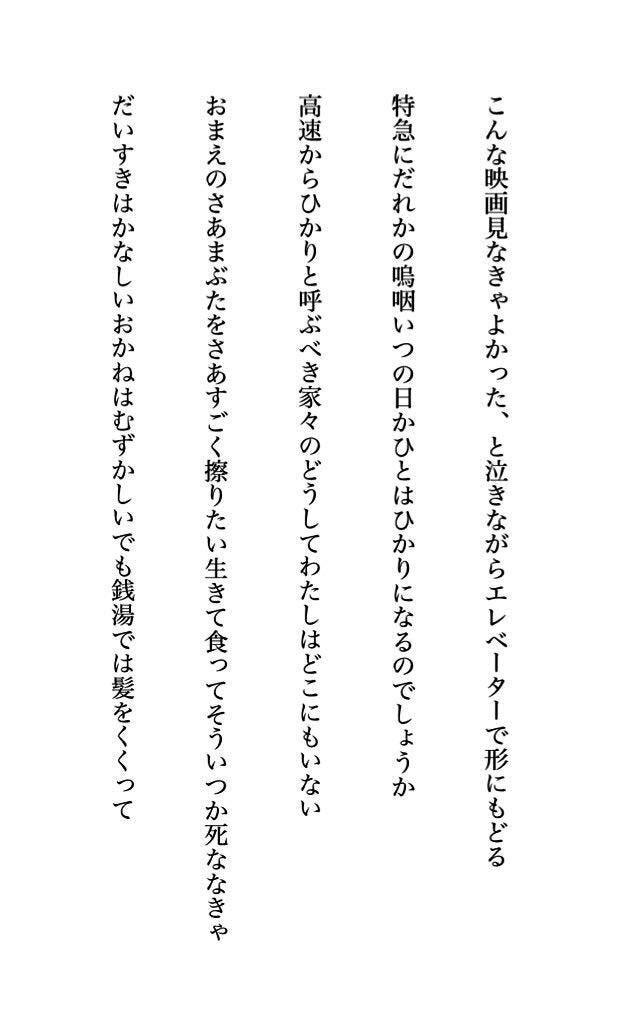 こんな映画見なきゃよかった、と泣きながらエレベーターで形にもどる
特急にだれかの嗚咽いつの日かひとはひかりになるのでしょうか
高速からひかりと呼ぶべき家々のどうしてわたしはどこにもいない
おまえのさあまぶたをさあすごく擦りたい生きて食ってそういつか死ななきゃ
だいすきはかなしいおかねはむずかしいでも銭湯では髪をくくって